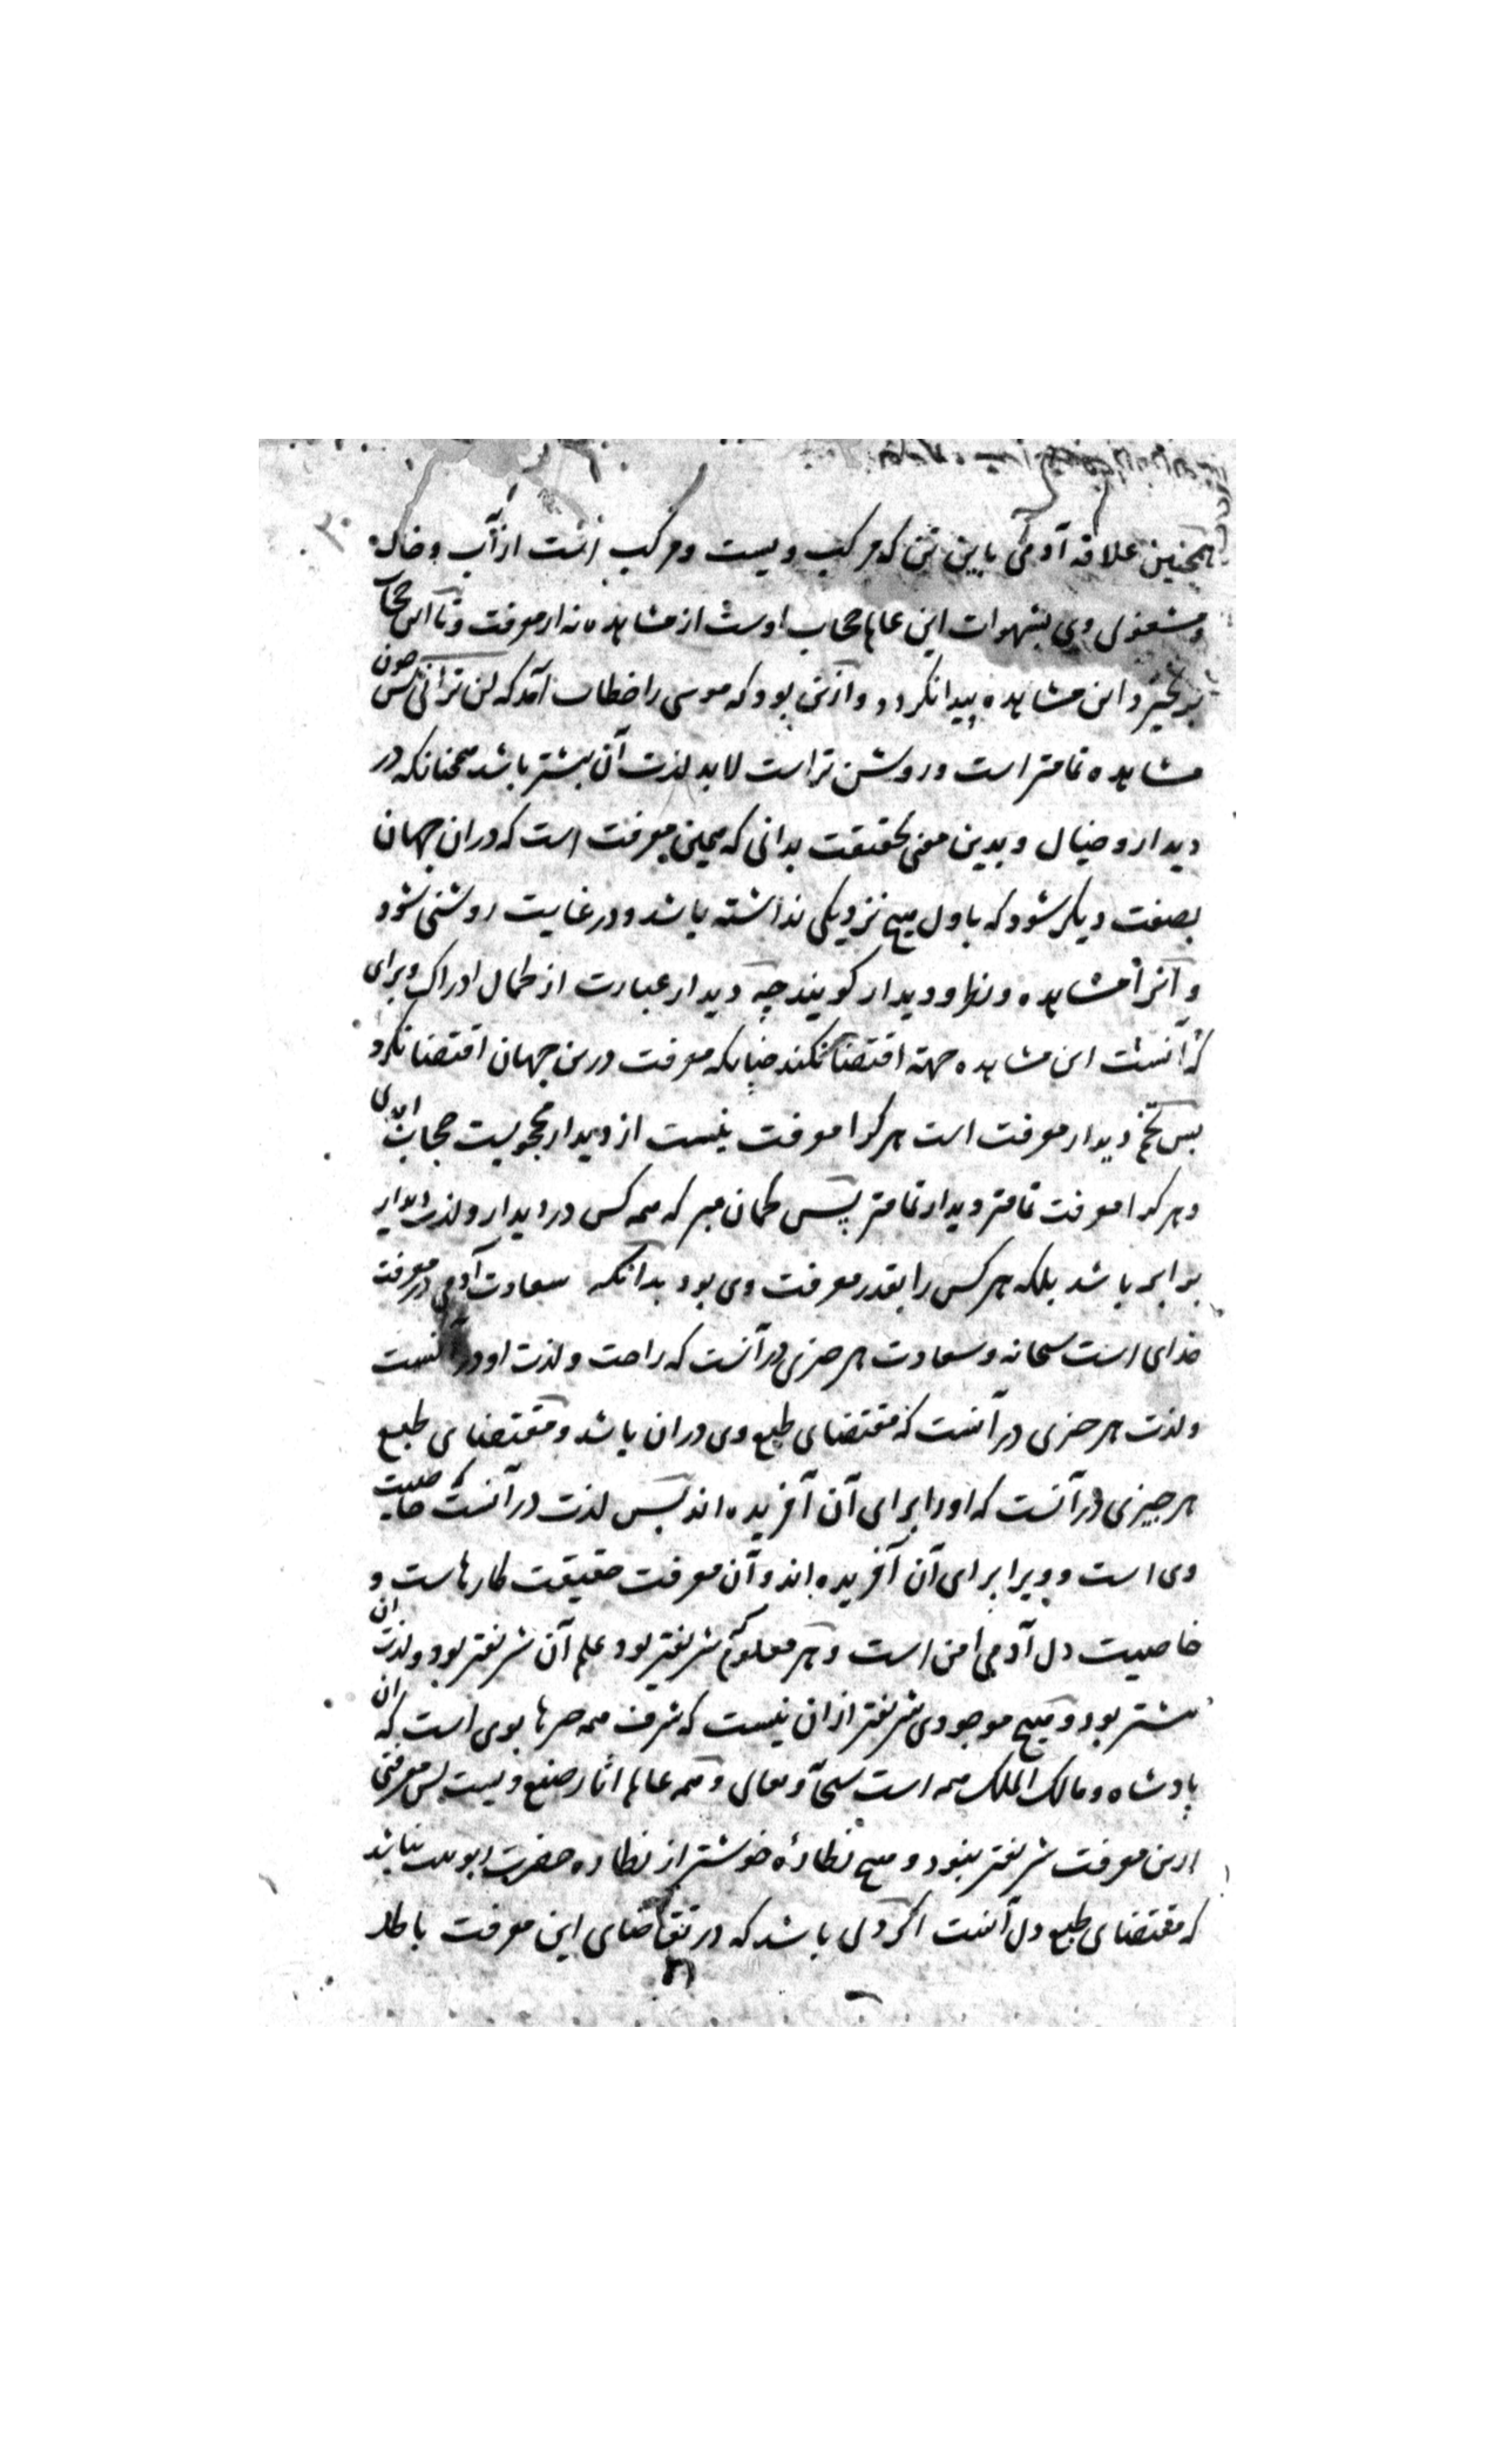 همچنین علاقه آدمی باین تن که مرکب ویست و مرکب است از آب و خاک
و مشغولی وی بشهوات این عالم حجاب اوست از مشاهده نه از معرفت و تا این حجاب
برنخیزد این مشاهده پیدا نگردد و ازین بود که موسی را خطاب آمد که لن ترانی پس چون
مشاهده تمامتر است و روشن تر است لابد لذت آن بیشتر باشد همچنانکه در
دیدار و خیال و بدین معنی بحقیقت بدانی که همین معرفت است که در ان جهان
بصفت دیگر شود که باول هیچ نزدیکی نداشته باشد و در غایت روشنی شود
و آنرا مشاهده و نظر و دیدار گویند چه دیدار عبارت از کمال ادراک و برای
آنست این مشاهده جهة اقتضا نکند چنانکه معرفت درین جهان اقتضا نکرد
پس تخم دیدار معرفت است هر کرا معرفت نیست از دیدار محجوبست حجاب ابدی
و هر کرا معرفت تمامتر دیدار تمامتر پس گمان مبر که همه کس در دیدار و لذت دیدار
برابر باشد بلکه هر کس را بقدر معرفت وی بود بدانکه سعادت آدمی در معرفت
خدای است سبحانه و سعادت هر چیزی در آنست که راحت و لذت او در آنست
و لذت هر چیزی در آنست که مقتضای طبع وی در ان باشد و مقتضای طبع
هر چیزی در آنست که او را برای آن آفریده اند پس لذت در آنست که خاصیت
وی است و ویرا برای آن آفریده اند و آن معرفت حقیقت کارهاست و
خاصیت دل آدمی این است و هر معلوم که شریفتر بود علم آن شریفتر بود و لذت ان
بیشتر بود و هیچ موجودی شریفتر از ان نیست که شرف همه چیزها بوی است که ان
پادشاه و مالک الملک همه است سبحانه و تعالی و همه عالم اثار صنع ویست پس معرفتی
ازین معرفت شریفتر نبود و هیچ نظارهٔ خوشتر از نظاره حضرت ربوبیت نباشد
که مقتضای طبع دل آنست اگر دلی باشد که در تقاضای این معرفت باطل